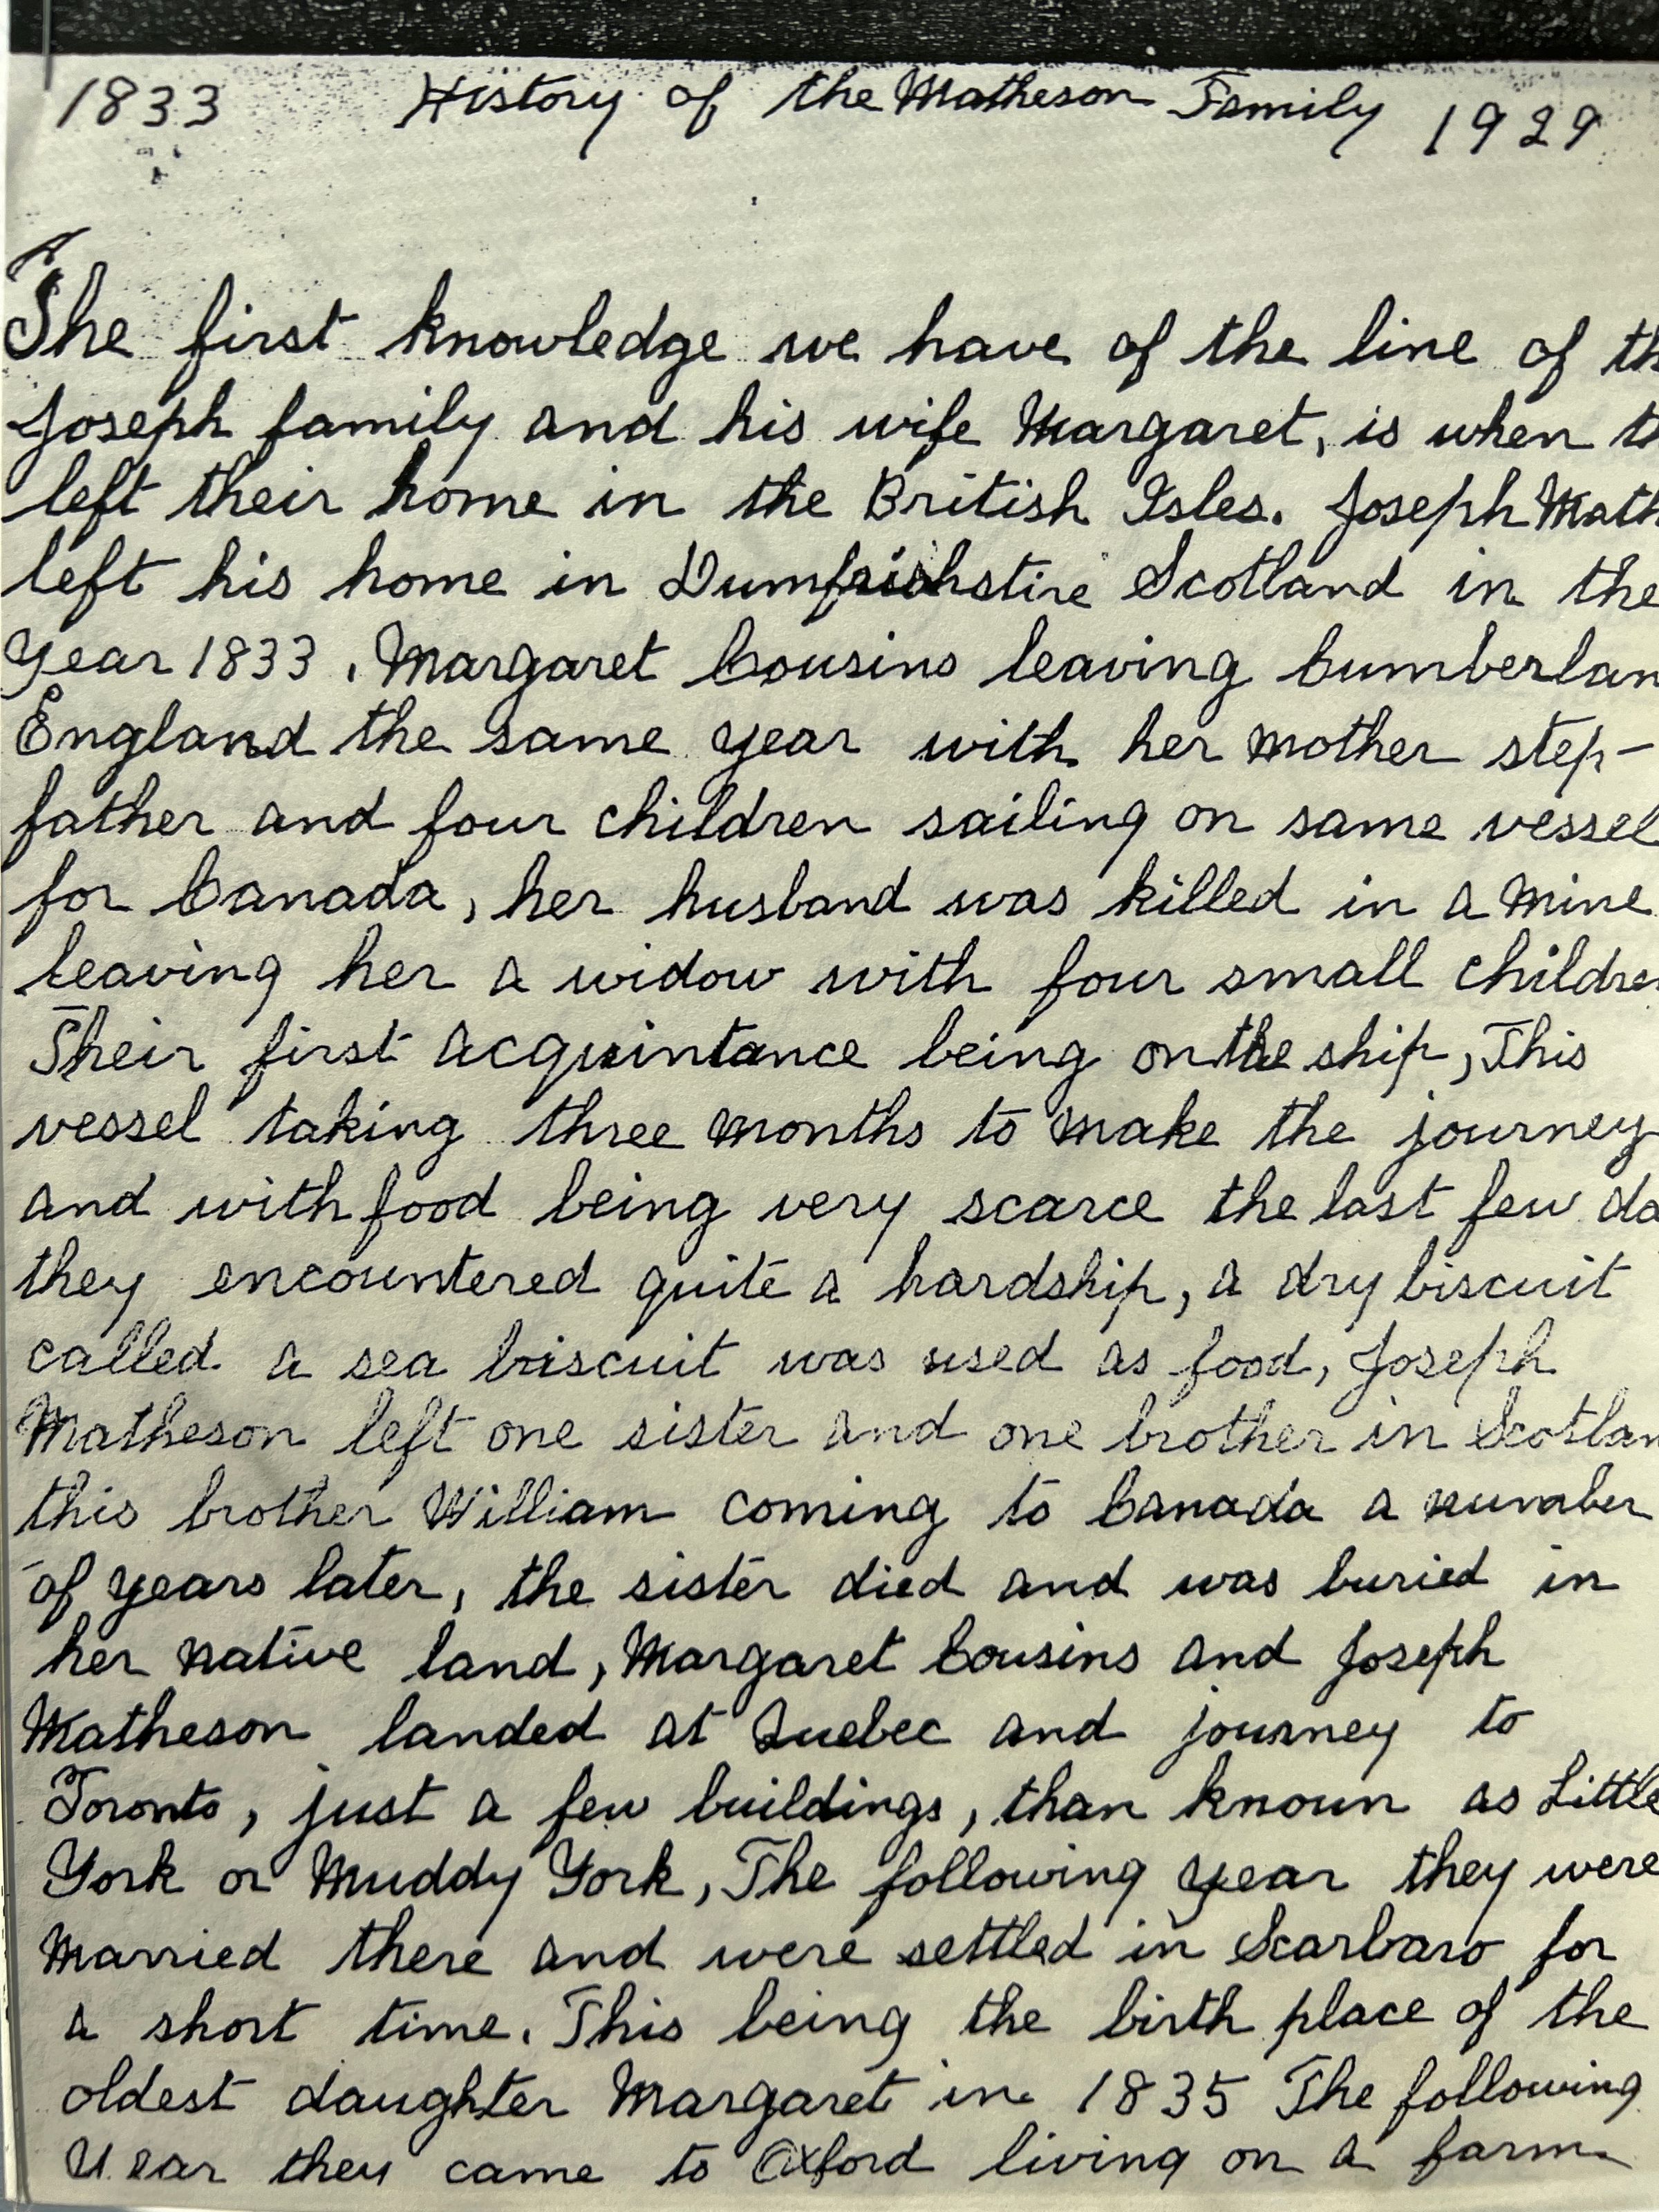 1833 History of the Matheson Family 1929
The first knowledge we have of the line of th
Joseph family and his wife Margaret, is when t
left their home in the British Isles. Joseph Math
left his home in Scotland in the
Year 1833. Margaret Cousins leaving Cumberlan
England the same year with her mother step-
father and four children sailing on same vessel
for Canada, her husband was killed in a mine
leaving her a widow with four small childre
Their first acquintance being on the ship, This
vessel taking three months to make the journey
and with food being very scarce the last few da
they encountered quite a hardship, a dry biscuit
called a sea biscuit was used as food, Joseph
Matheson left one sister and one brother in Scotlan
this brother William coming to Canada a number
of years later, the sister died and was buried in
her native land, Margaret Cousins and Joseph
Matheson landed at Quebec and journey to
Toronto, just a few buildings, than knoun as Little
York or Muddy York, The following year they were
married there and were settled in Scarbaro for
a short time. This being the birth place of the
oldest daughter Margaret in 1835 The following
Year they came to Oxford living on a farm